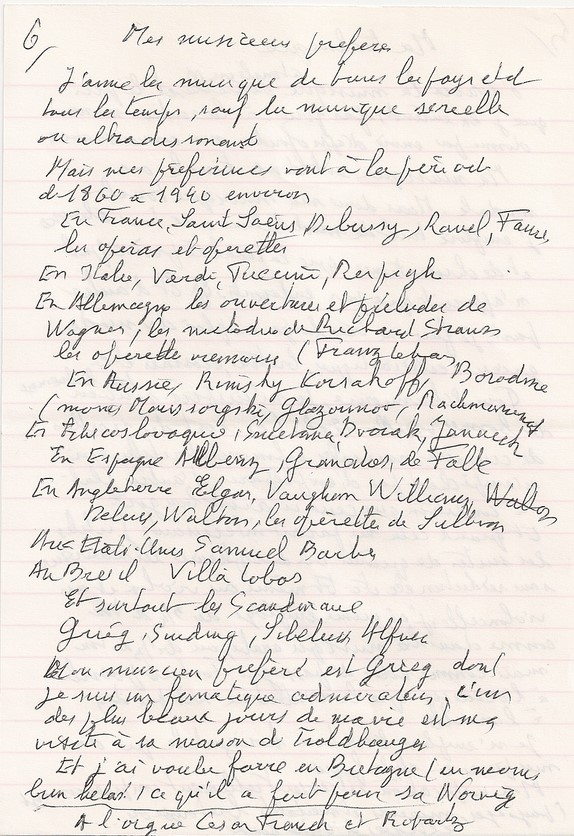 6/ Mes musiciens préférés
J'aime la musique de tous les pays et d
tous les temps, sauf la musique sérielle
ou ultradissonant
Mais mes préférences vont à la périod
d 1860 à 1940 environ
En France, Saint Saëns Debussy, Ravel, Faure,
les opéras et opérettes
En Italie, Verdi, Puccini, Respighi
En Allemagne les ouvertures et préludes de
Wagner, les mélodies de Richard Strauss
les opérette viennoise (Franz Lehar,
En Russie, Rimsky Korsakoff, Borodine
(moins Moussorgski, Glazounov, Rachmaninof
En Tchecoslovaquie, Smetana Dvorak, Janacek
En Espagne Albeniz, Granados, de Falla
En Angleterre Elgar, Vaughan Williams, Walton
Delius, Walton, les opérettes de Sullivan
Aux Etats-Unis Samuel Barber
Au Bresil Villa Lobos
Et surtout les Scandinave
Grieg, Sinding, Sibelius, Alfven
Mon musicien préféré est Grieg dont
je suis un fanatique admirateur, l'un
des plus beaux jours de ma vie est ma
visite à sa maison d Troldhaugen
Et j'ai voulu faire en Bretagne (en moins
bien helas!) ce qu'il a fait pour sa Norvèg
A l'orgue Cesar Franck et Ropartz